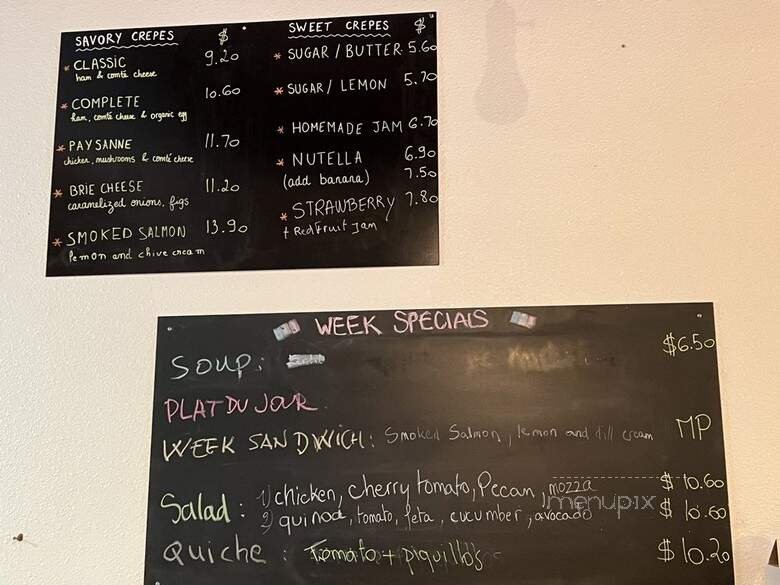 SAVORY CREPES $
* CLASSIC 9.20
ham & comté cheese
* COMPLETE 10.60
ham, comté cheese & organic egg
* PAYSANNE 11.70
chicken, mushrooms & comté cheese
* BRIE CHEESE 11.20
caramelized onions, figs
* SMOKED SALMON 13.90
lemon and chive cream
SWEET CREPES $
* SUGAR / BUTTER 5.60
* SUGAR / LEMON 5.70
* HOMEMADE JAM 6.70
* NUTELLA 6.90
(add banana) 7.50
* STRAWBERRY 7.80
+ Red Fruit Jam
WEEK SPECIALS
SOUP: $6.50
PLAT DU JOUR
WEEK SANDWICH: Smoked Salmon, lemon and dill cream MP
Salad: 1) chicken, cherry tomato, Pecan, mozza $10.60
2) quinoa, tomato, feta, cucumber, avocado $10.60
Quiche: Tomato + piquillo's $10.20
menupix